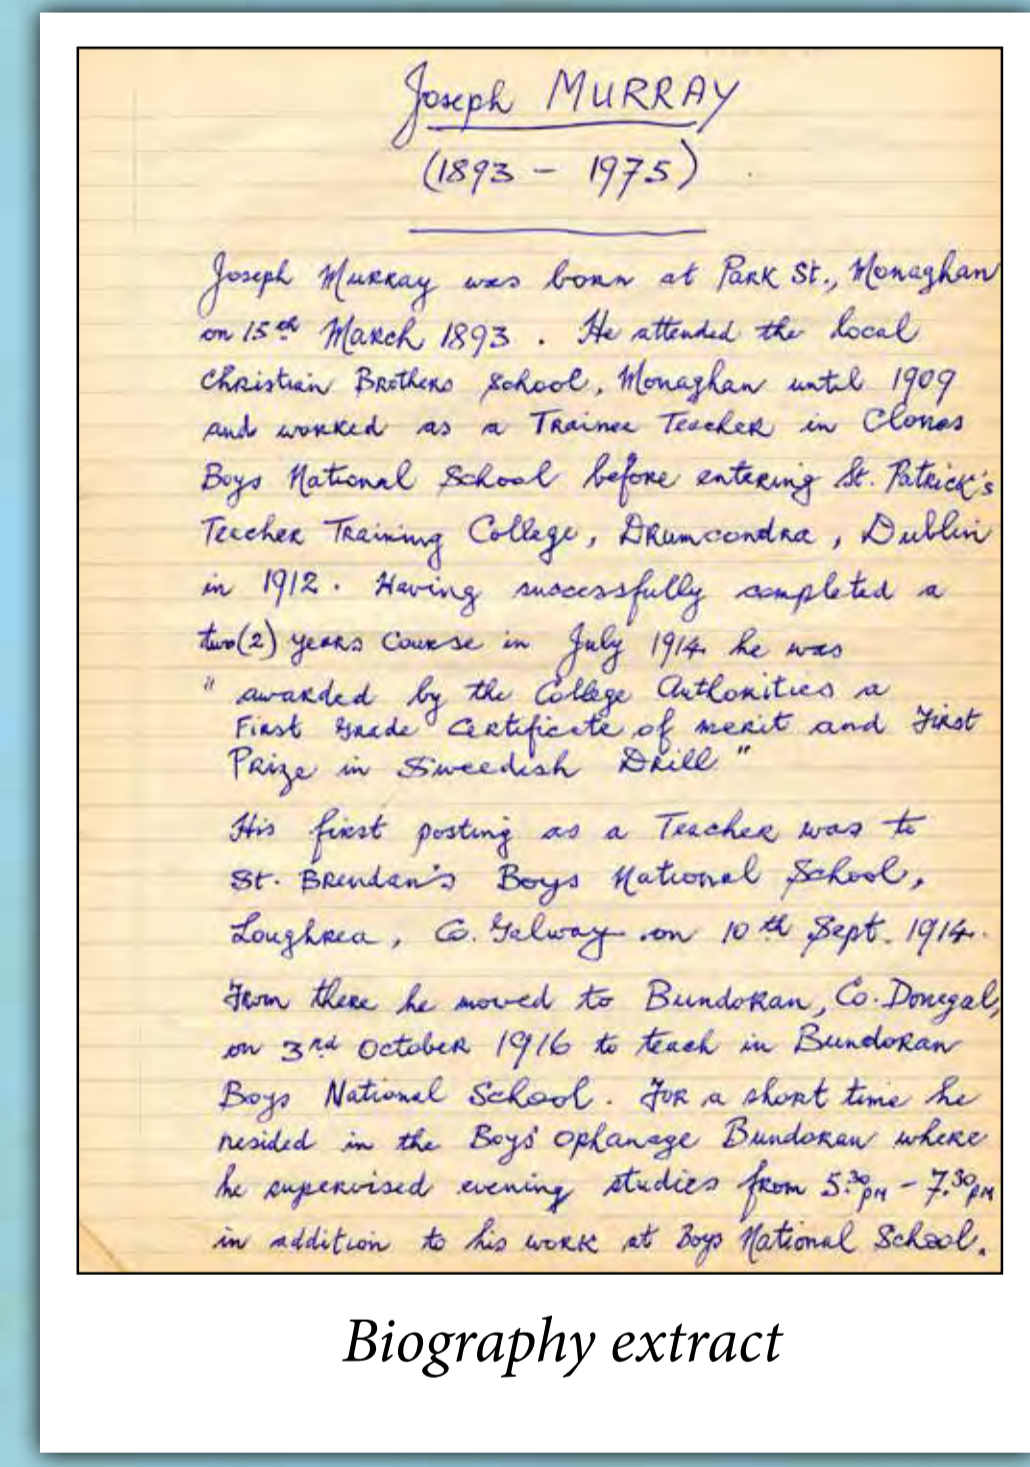 Joseph MURRAY
(1893 - 1975)
Joseph Murray was born at Park St., Monaghan
on 15th March 1893. He attended the local
Christian Brothers School, Monaghan until 1909
and worked as a Trainee Teacher in Clones
Boys National School before entering St. Patrick's
Teacher Training College, Drumcondra, Dublin
in 1912. Having successfully completed a
two(2) years Course in July 1914 he was
" awarded by the College Authorities a
First Grade Certificate of merit and First
Prize in Sweedish Drill "
His first posting as a Teacher was to
St. Brendan's Boys National School,
Loughrea, Co. Galway on 10th Sept. 1914.
From there he moved to Bundoran, Co. Donegal,
on 3rd October 1916 to teach in Bundoran
Boys National School. For a short time he
resided in the Boys' Ophanage Bundoran where
he supervised evening studies from 5.30pm - 7.30pm
in addition to his work at Boys National School.
Biography extract